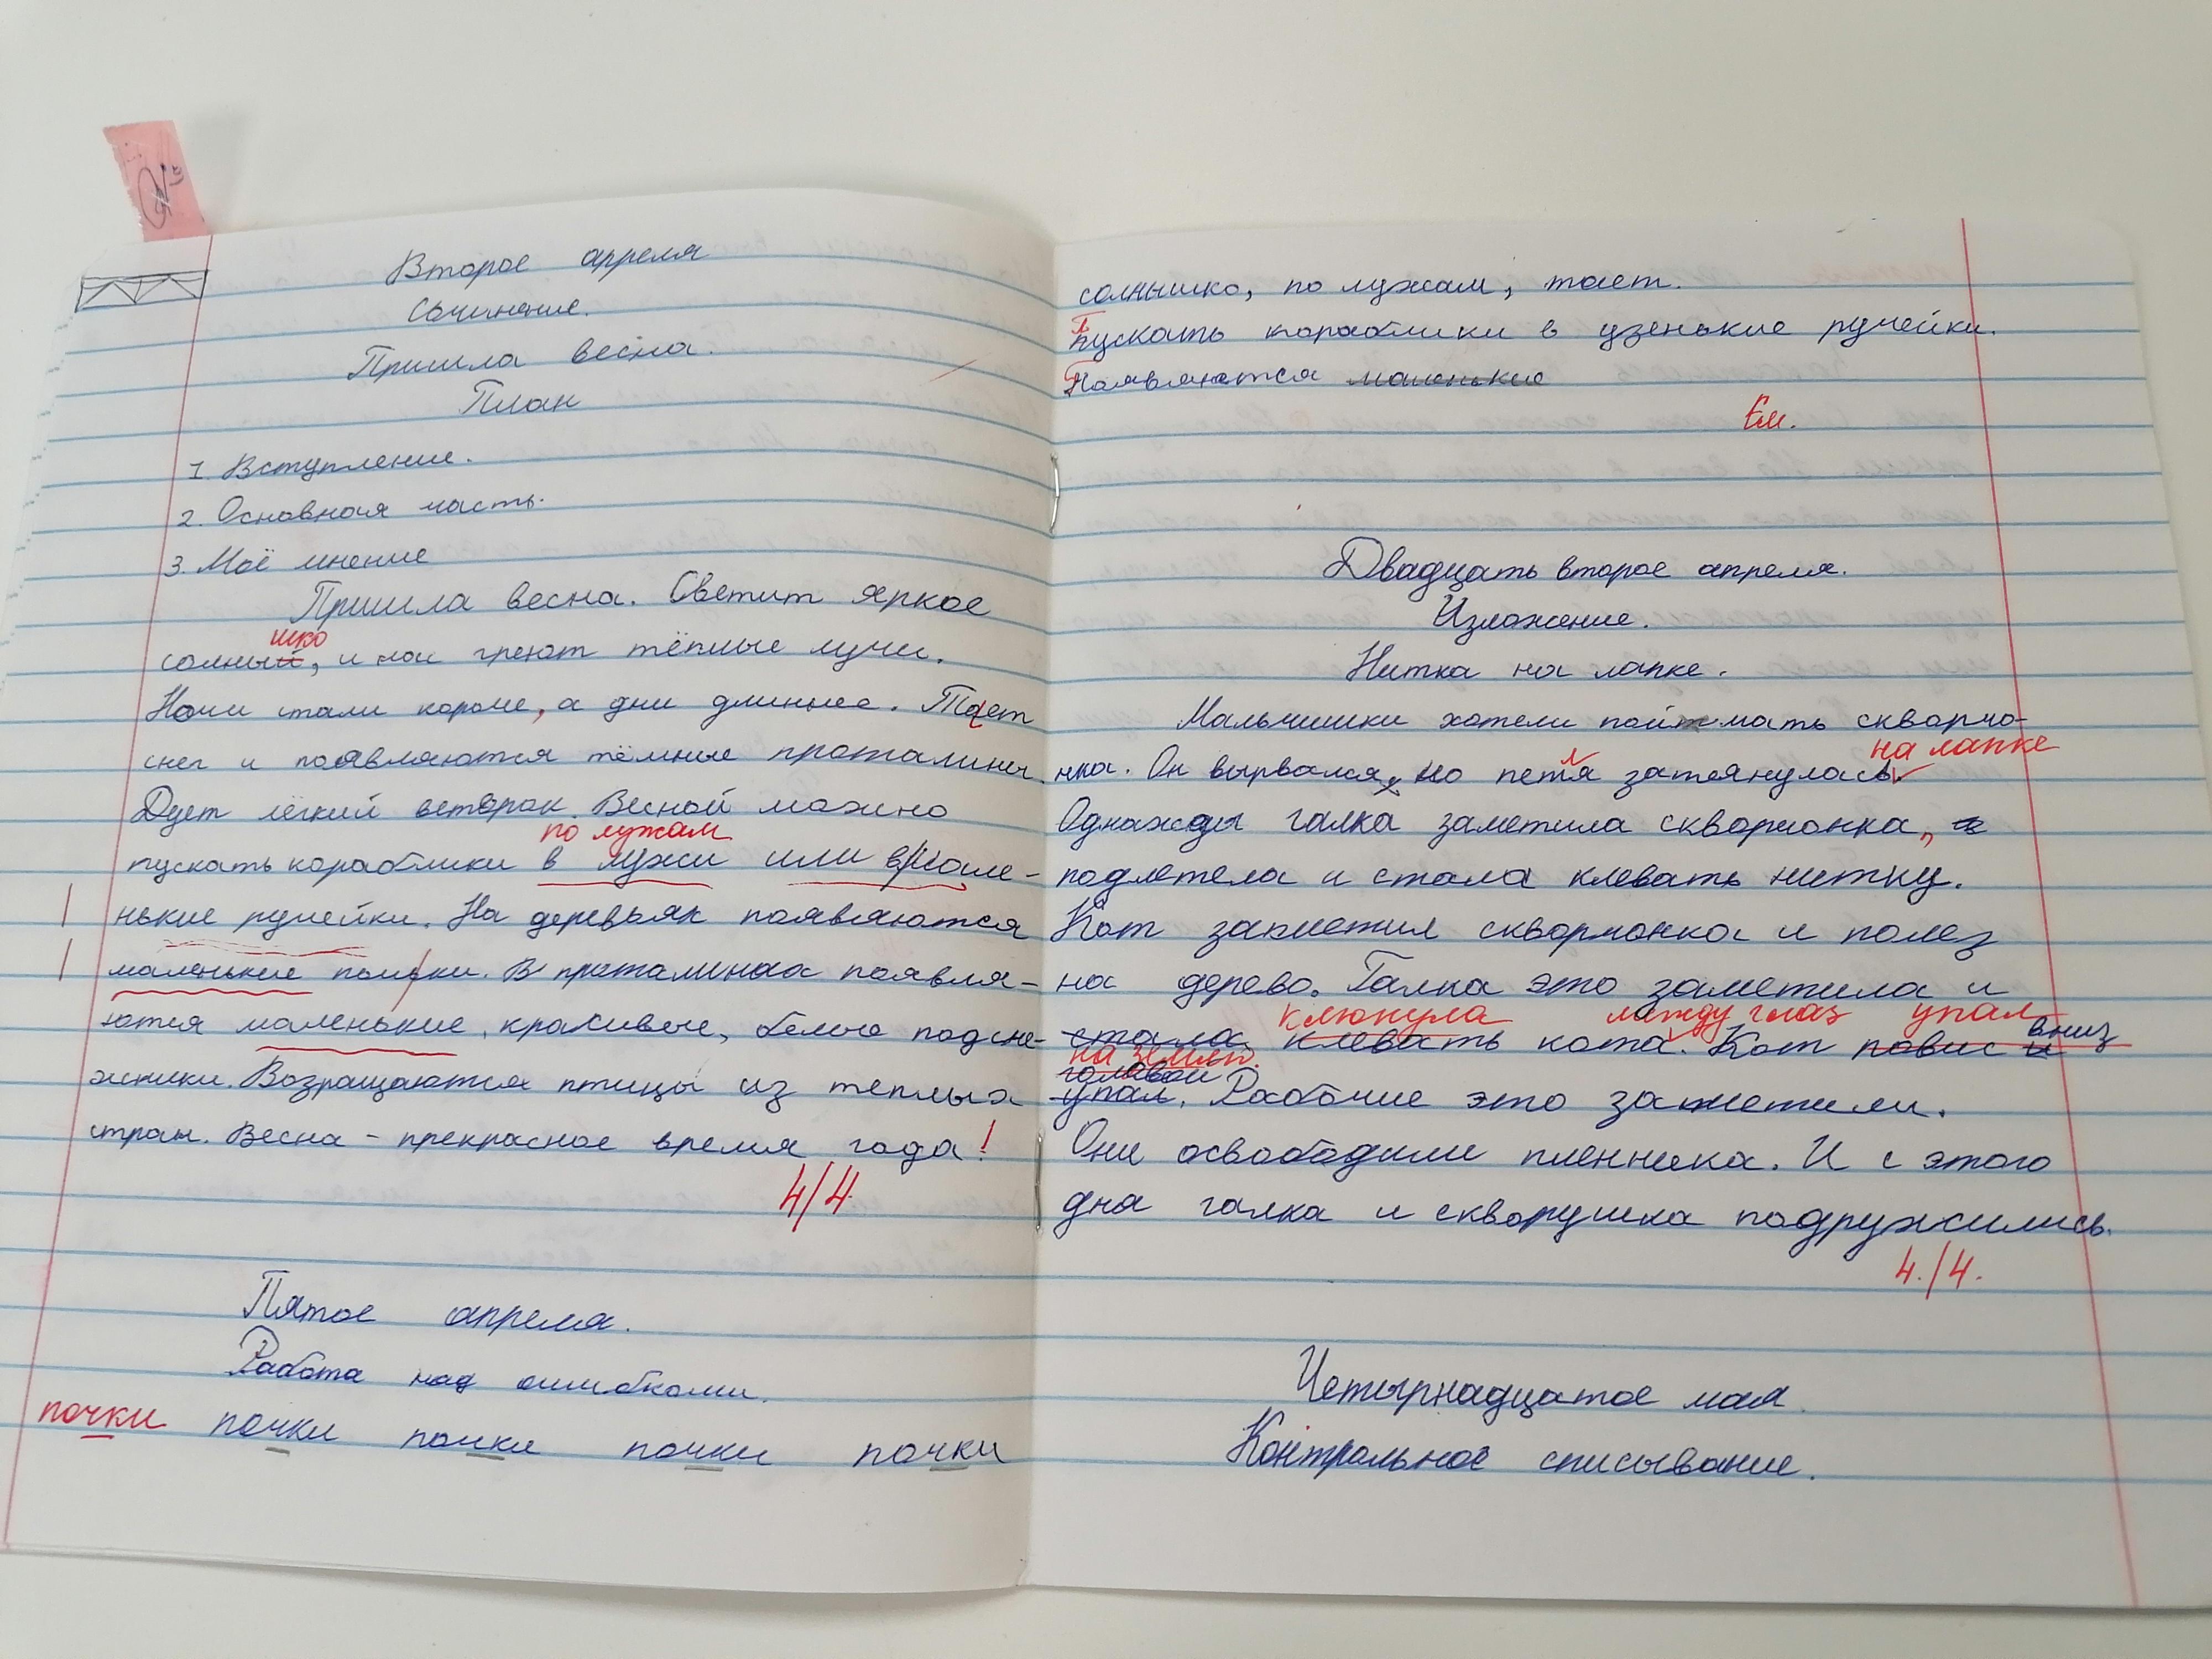 Второе апреля
Сочинение.
Пришла весна.
План
1. Вступление.
2. Основная часть.
3. Моё мнение
Пришла весна. Светит яркое
шко
солный, и нас греют тёплые лучи.
Ночи стали короче, а дни длиннее. Тает
снег и появляются тёмные проталины.
Дует лёгкий ветерок. Весной можно
по лужам
пускать кораблики в лужи или в мале-
нькие ручейки. На деревьях появляются
маленькие почьки. В проталинах появля-
ются маленькие, красивые, белые подсне-
жники. Возращаются птицы из теплых
стран. Весна - прекрасное время года!
4/4
Пятое апреля.
Работа над ошибками.
почки почки почки почки почки
солнышко, по лужам, тает.
Пускать кораблики в узенькие ручейки.
Появляются маленькие
См.
Двадцать второе апреля.
Изложение.
Нитка на лапке.
Мальчишки хотели поймать скворчо-
на лапке
нка. Он вырвался, но петля затянулась.
Однажды галка заметила скворчонка, и
подлетела и стала клевать нитку.
Кот заметил скворчонка и полез
на дерево. Галка это заметила и
клюнула между глаз упал
стала клевать кота. Кот повис и вниз
на землю.
головой
упал. Рабочие это заметили.
Они освободили пленника. И с этого
дня галка и скворушка подружились.
4/4.
Четырнадцатое мая.
Контрольное списывание.